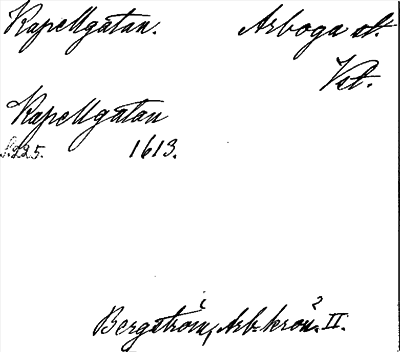 Kapellgatan. Arboga st.
Vstm.
Kapellgatan
S. 225. 1613.
Bergström, Arb. krön. II.